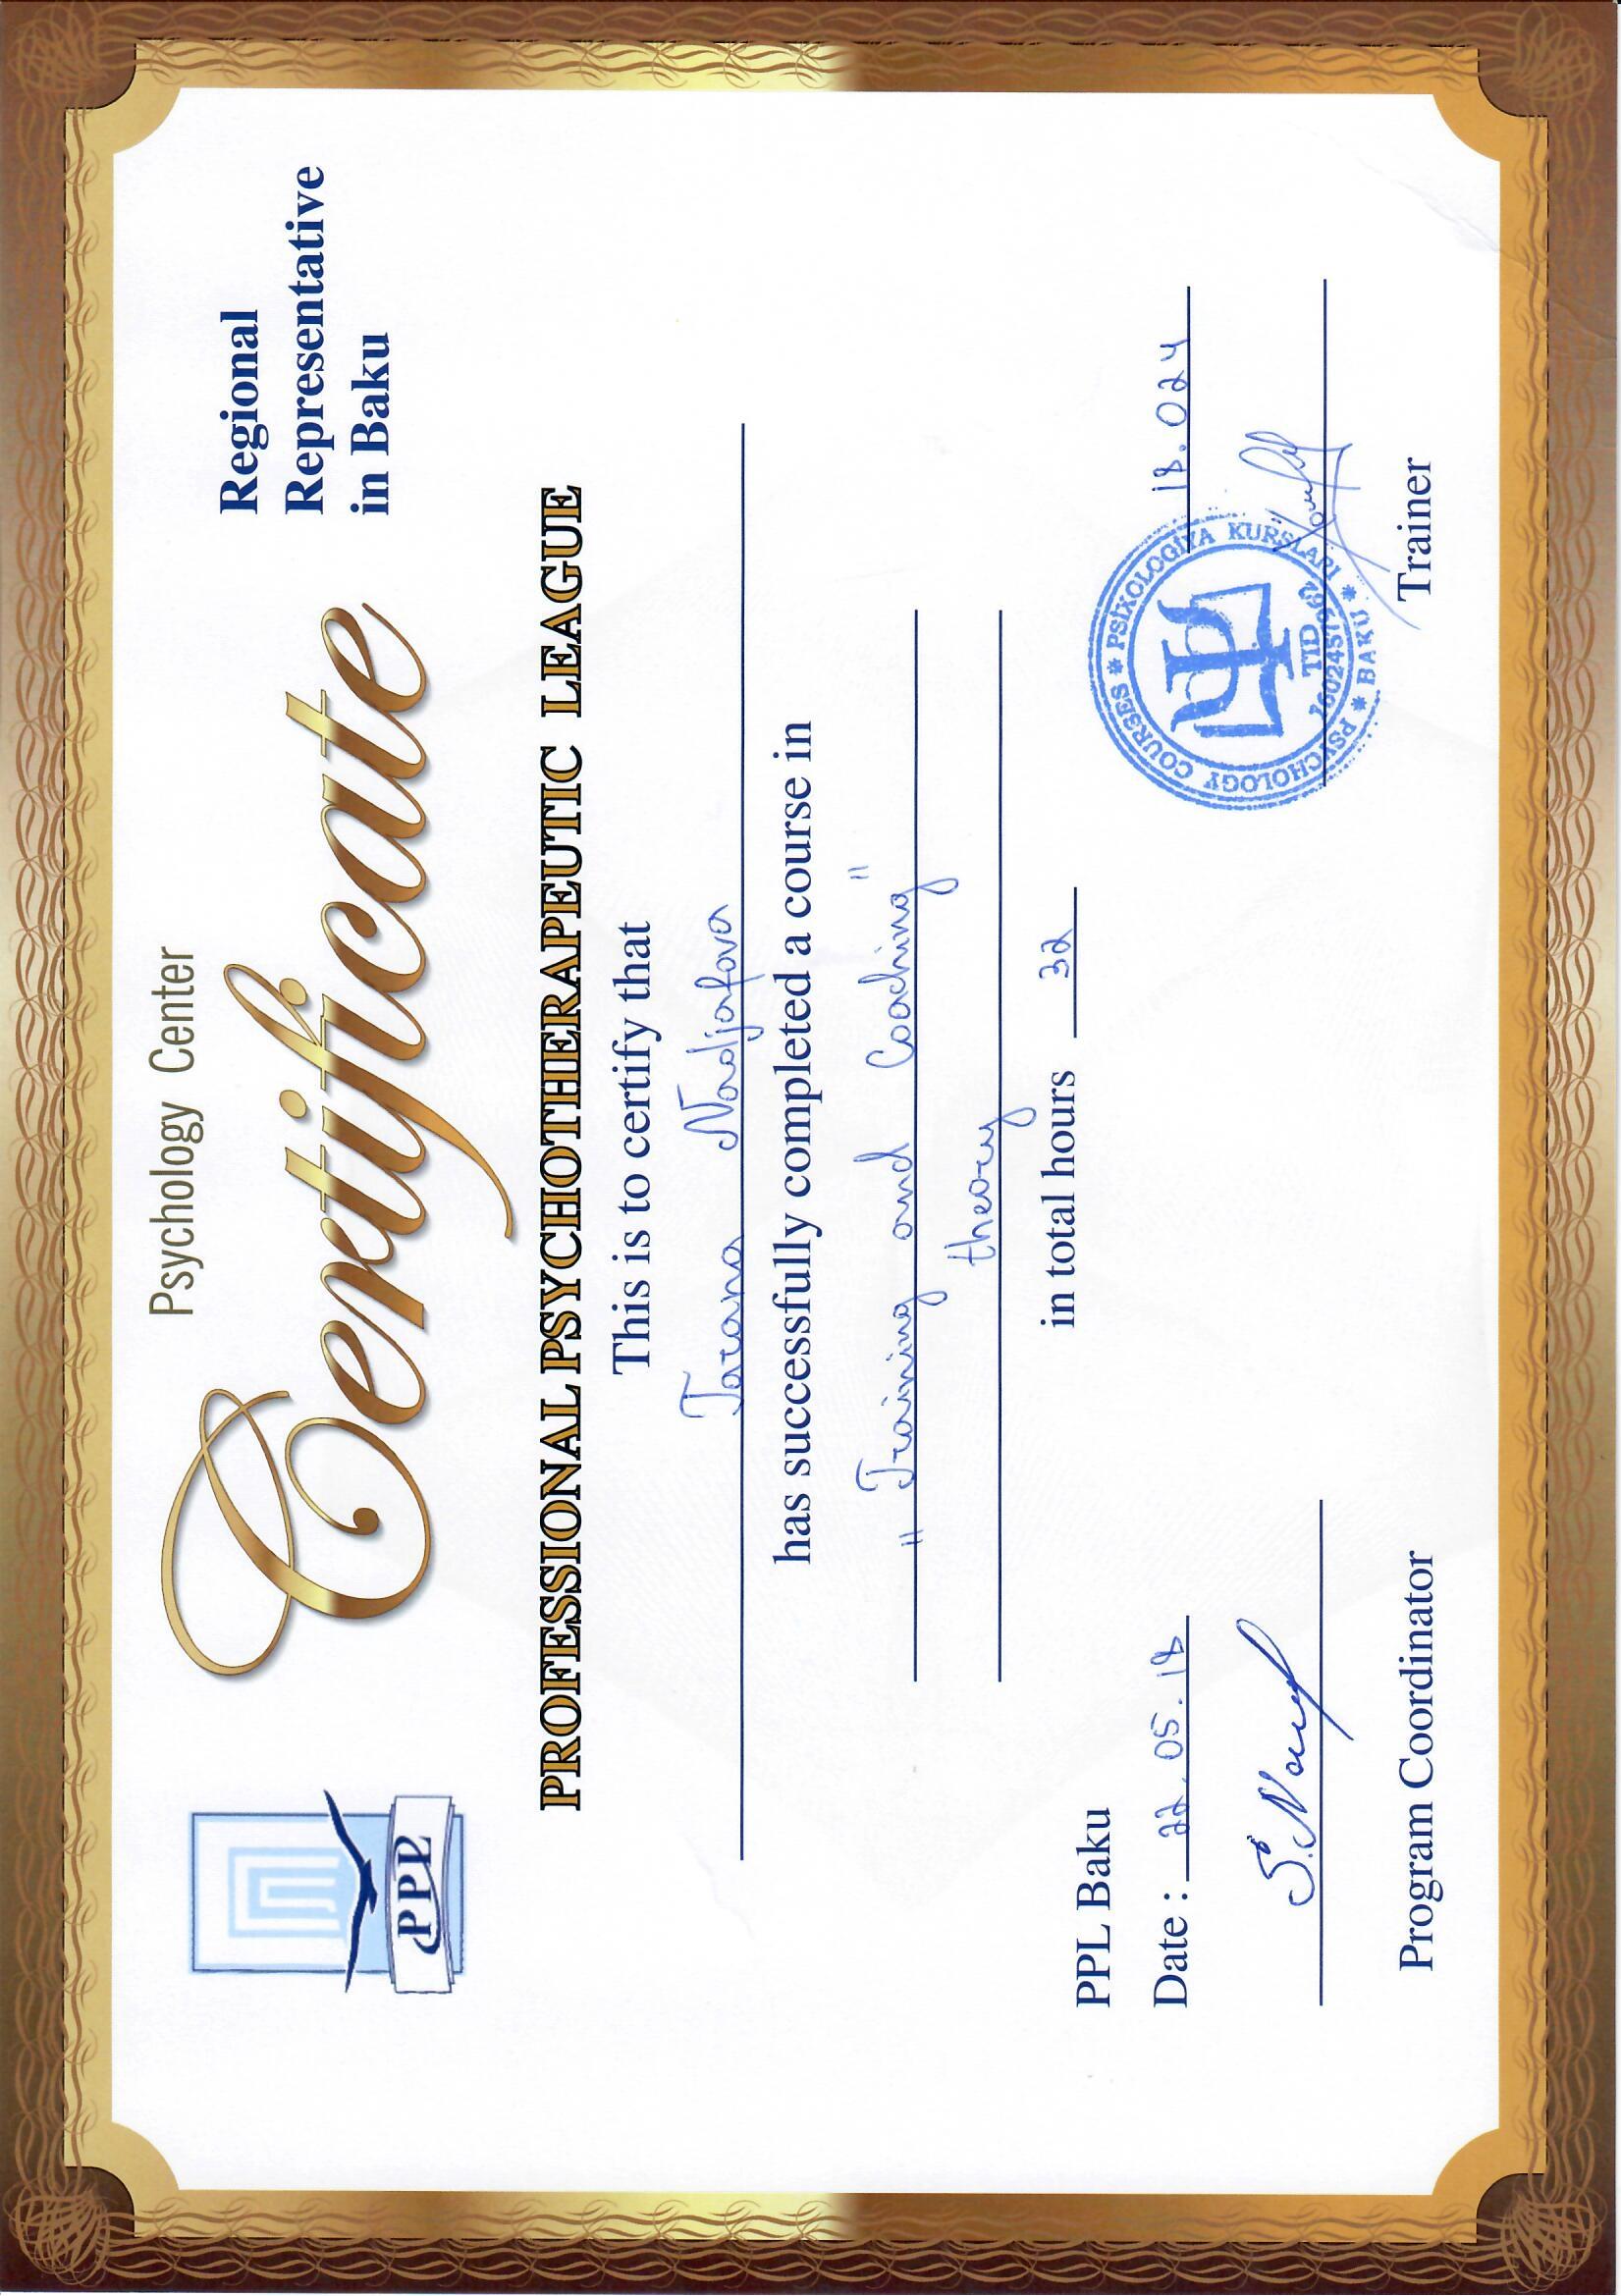 Psychology Center
Certificate
PPL
Regional
Representative
in Baku
PROFESSIONAL PSYCHOTHERAPEUTIC LEAGUE
This is to certify that
Tarana Nadjafova
has successfully completed a course in
„Training and Coaching"
theory
in total hours 32
PPL Baku
Date : 22.05.18
18.024
PSYCHOLOGY COURSES * PSİXOLOGİYA KURSLARI * BAKU *
TID
1602457962
Program Coordinator
Trainer